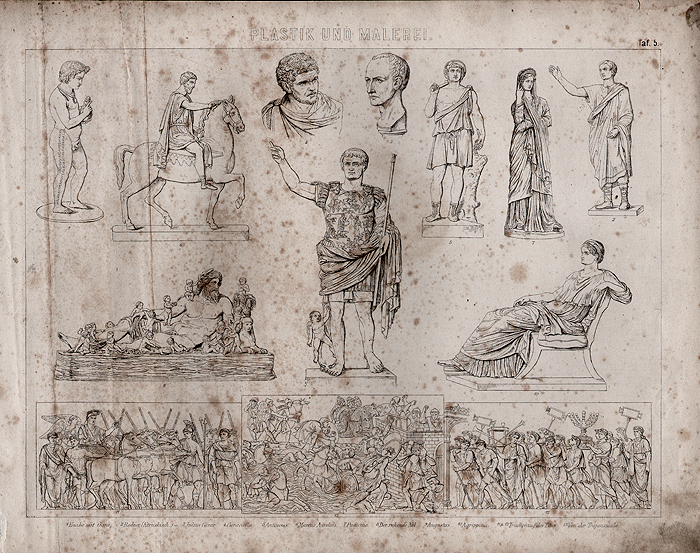 PLASTIK UND MALEREI.
Taf. 5.
5
7
2
1 Knabe mit Gans, 2 Redner (Altrömisch) 3 Julius Cäsar 4 Caracalla 5 Antinous 6 Marcus Aurelius 7 Pudicitia 8 Der ruhende Nil 9 Augustus 10 Agrippina Titus Von der Trajanssäule